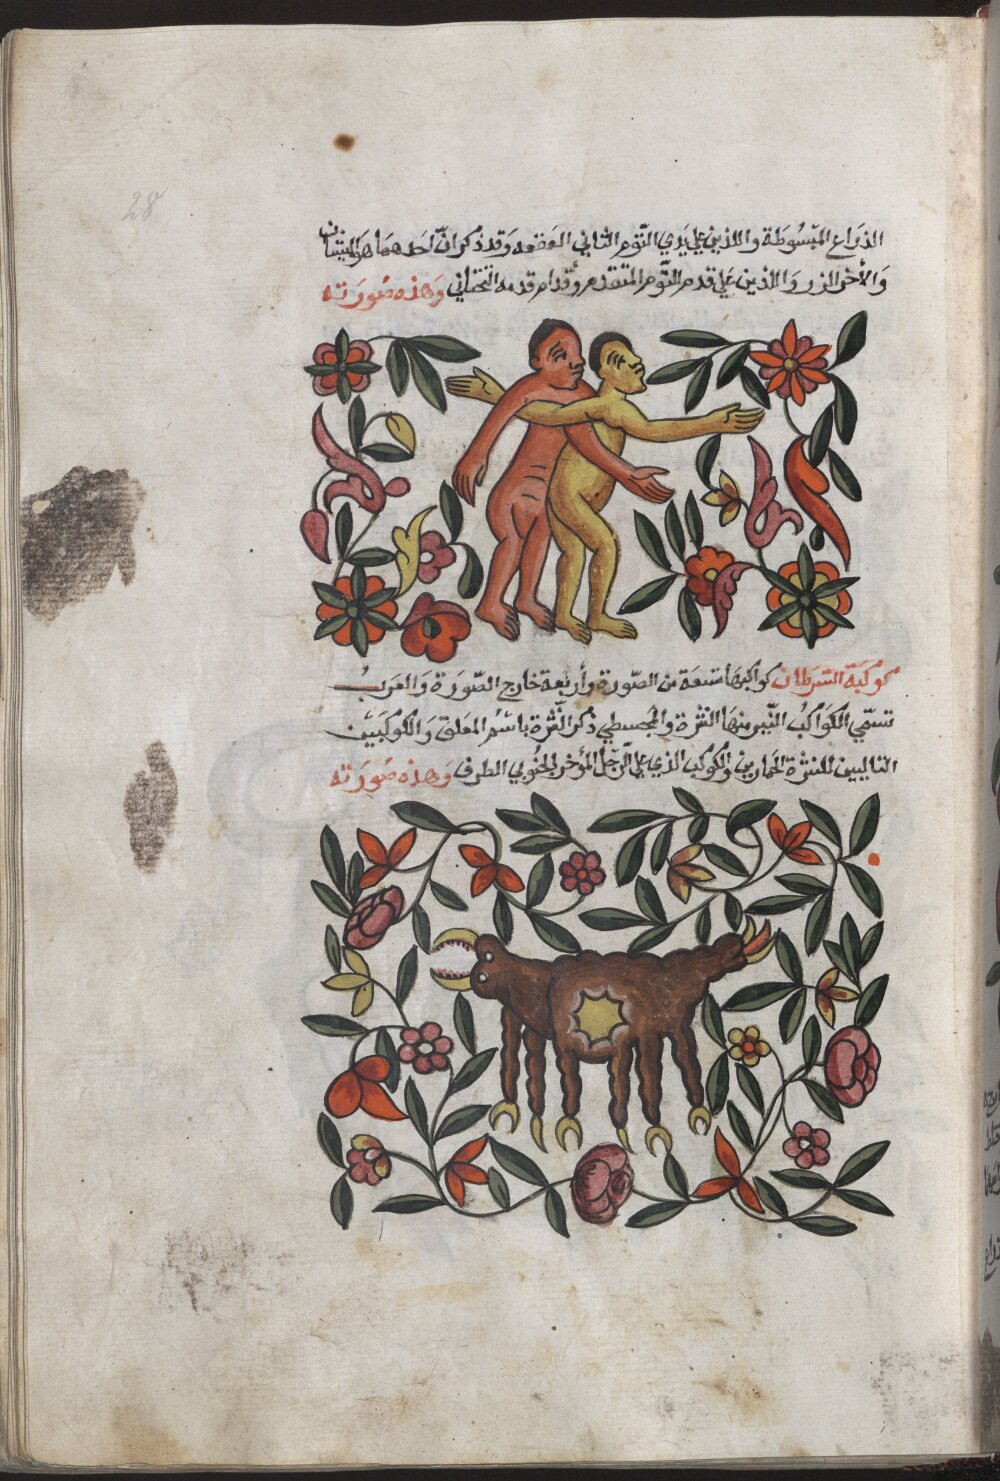 28
الذراع المبسوطة واللذين علي يدي التّوم الثاني الهقعه وقد ذكر انّ احدهما هو الميسان
والأخر الزر واللذين علي قدم التّوم المتقدم وقدام قدمه التحتاني وهذه صُورَته
كوكبَة السَّرَطان كواكبها تسعَة من الصّورة وأربعة خارج الصّورَة والعَرَبُ
تسمّي الكوَاكبُ النَّير منهَا النثرة والمجسطي ذكر النّثرة باسْم المعَلق وَالكوكَبَيْن
التاليين للنثرة الحمارين والكوكب الذي علي الرِّجل المؤخر الجنُوبي الطرف وهذه صُورَته